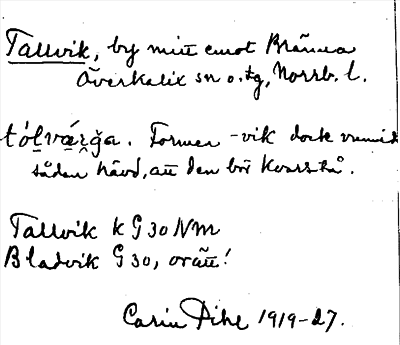 Tallvik, by mitt emot Bränna
Överkalix sn o. tg, Norrb. l.
Formen -vik dock vunnit
sådan hävd, att den bör kvarstå.
Tallvik k G 30 NM
Bladvik G 30, orätt!
Carin Pihl 1919-27.